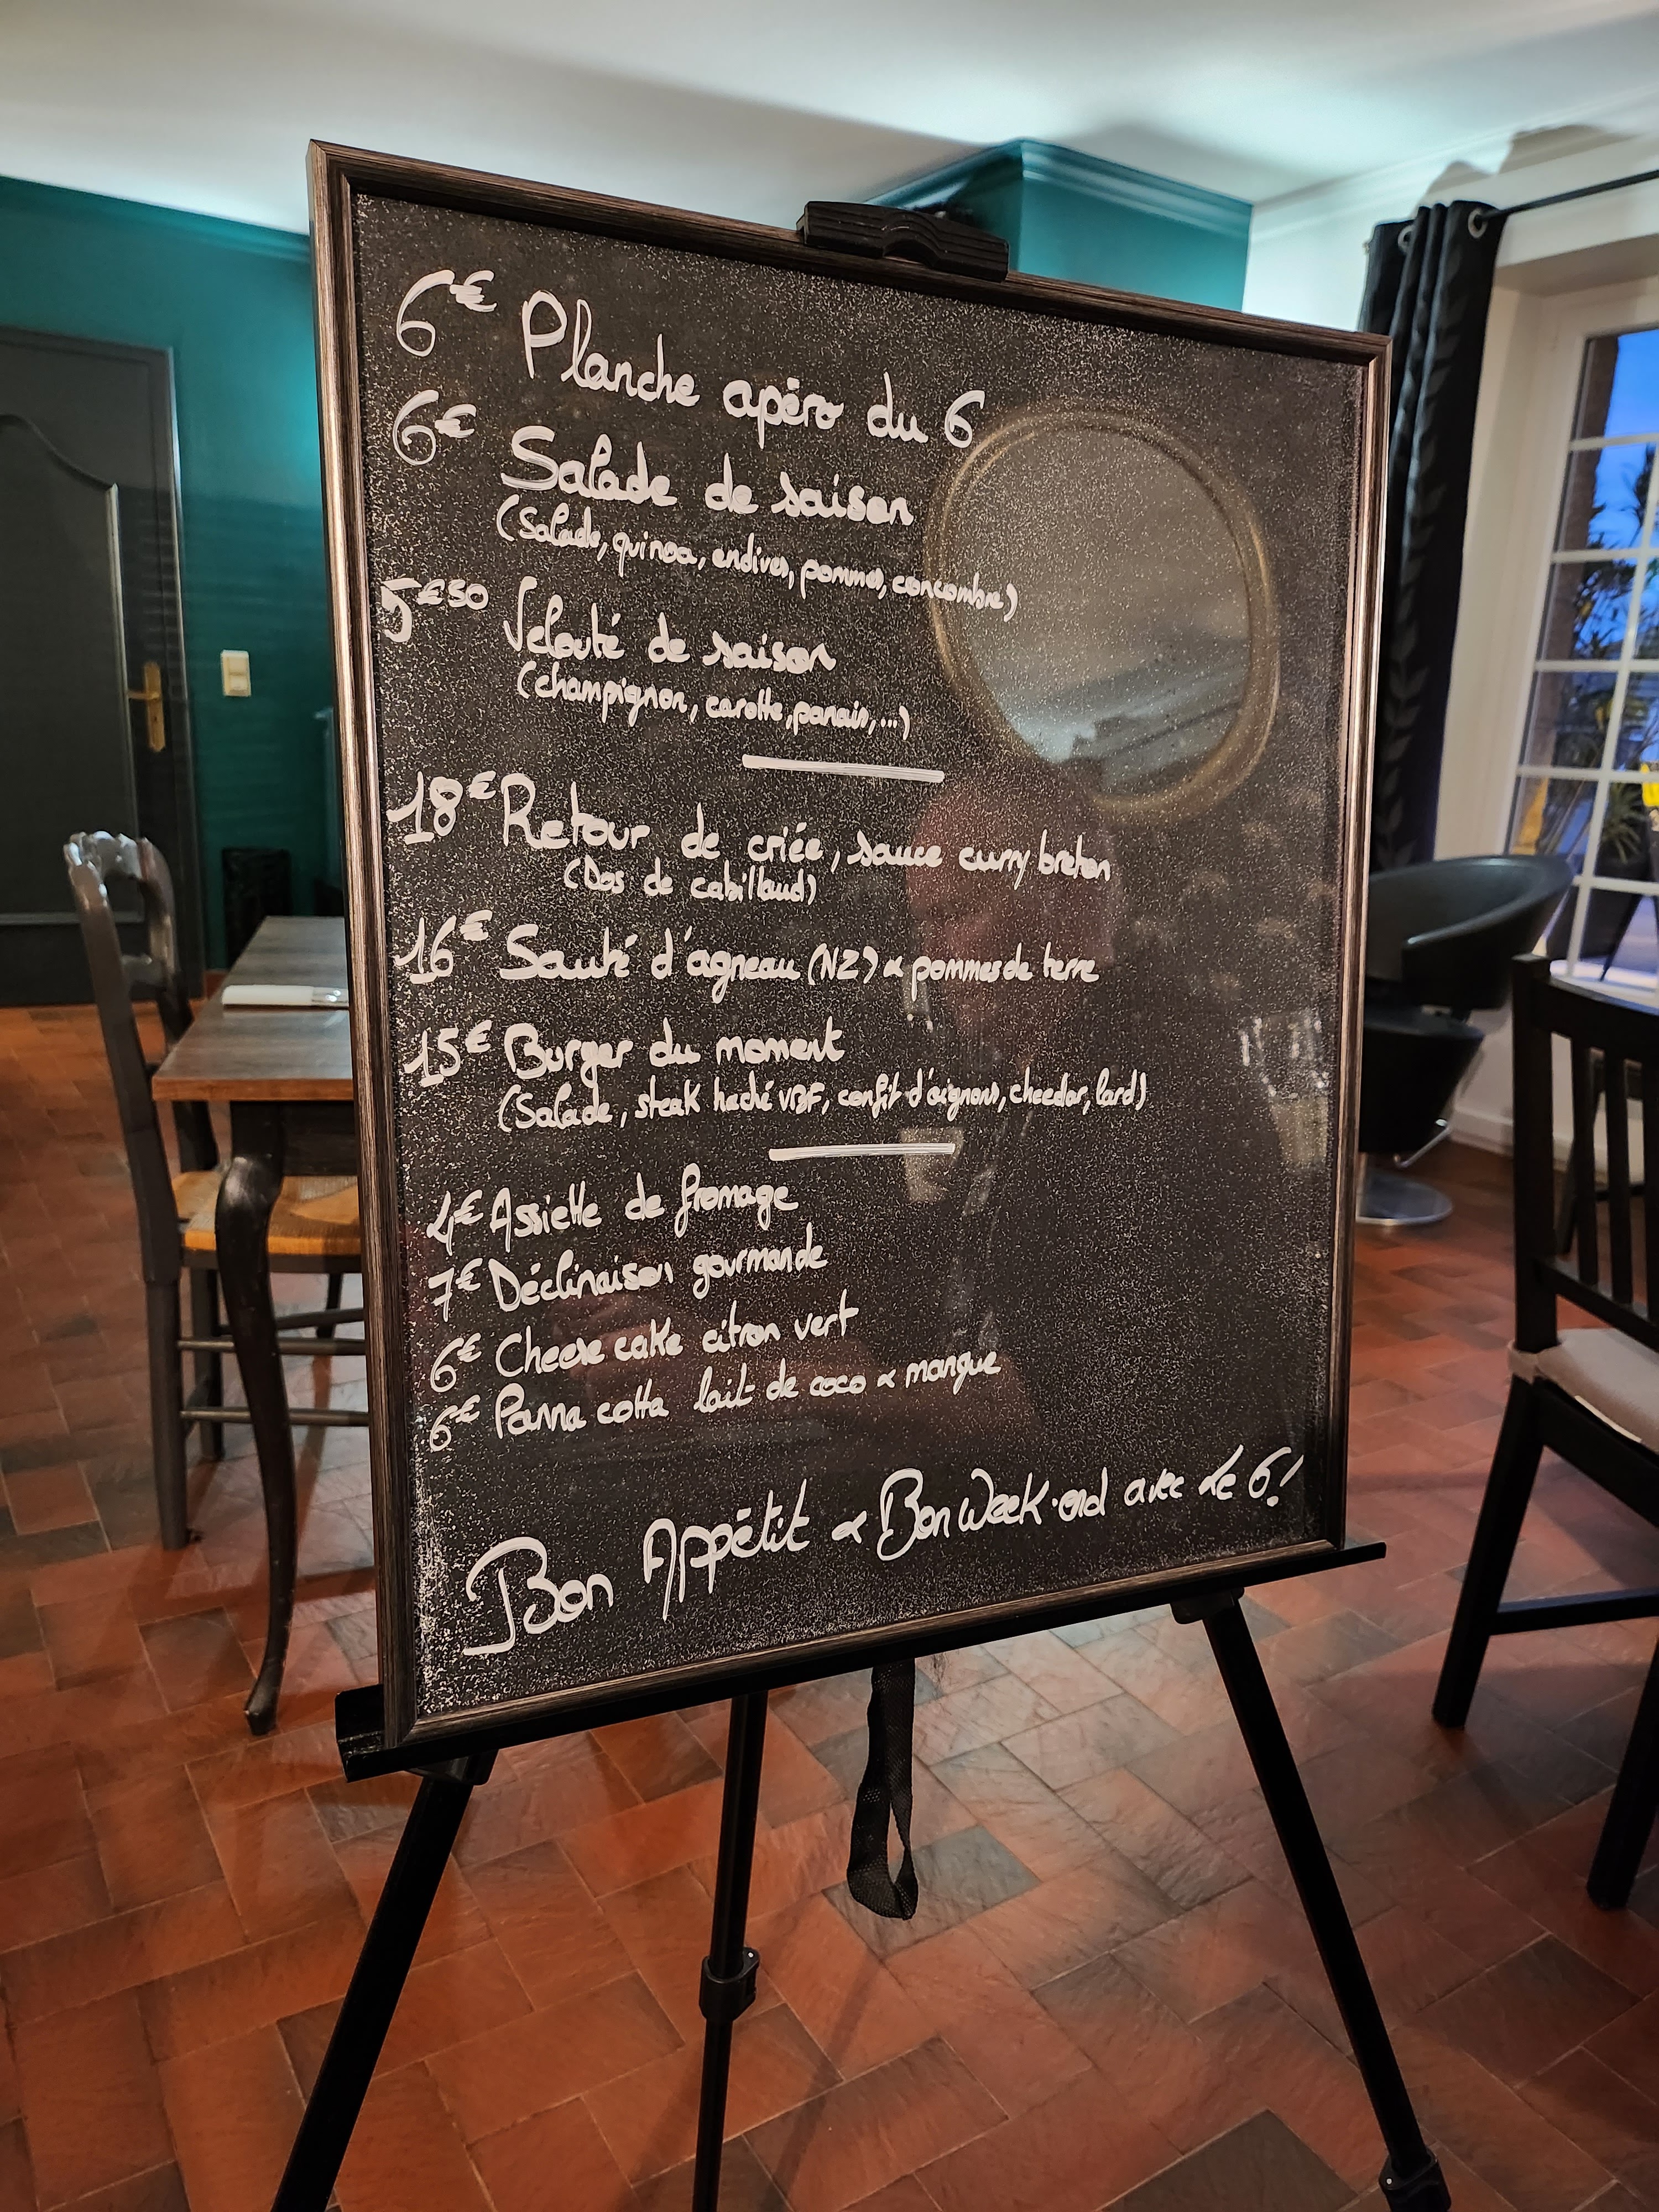 6€ Planche apéro du 6
6€ Salade de saison
(Salade, quinoa, endives, pommes, concombre)
5€50 Velouté de saison
(champignon, carotte, panais,...)
18€ Retour de criée, sauce curry breton
(Dos de cabillaud)
16€ Sauté d'agneau (NZ) & pommes de terre
15€ Burger du moment
(Salade, steak haché VBF, confit d'oignons, cheedar, lard)
4€ Assiette de fromage
7€ Déclinaison gourmande
6€ Cheese cake citron vert
6€ Panna cotta lait de coco & mangue
Bon Appétit & Bon Week-end avec Le 6!